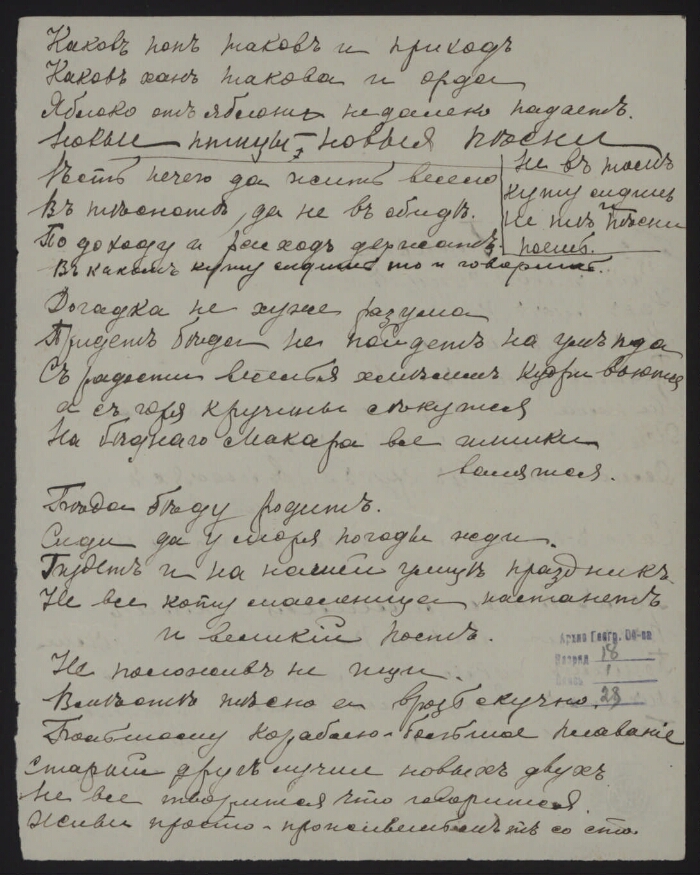 Каковъ попъ таковъ и приходъ
Каковъ ханъ такова и орда
Яблоко отъ яблони недалеко падаетъ.
Новыя птицы - новыя пѣсни
Ѣсть нечего да жить весело
Въ тѣснотѣ, да не въ обидѣ.
По доходу и расходъ держать.
Не въ томъ
куту сидишь
Не тѣ пѣсни
поешь.
Въ какомъ куту сидишь то и говоришь.
Догадка не хуже разума
Придетъ бѣда не пойдетъ на умъ ѣда
Съ радости веселья хмѣлемъ кудри вьются
а съ горя кручины сѣкутся
На бѣднаго Макара все шишки
валятся.
Бѣда бѣду родитъ.
Сиди да у моря погоды жди.
Будетъ и на нашей улицѣ праздникъ
Не все коту масленица настанетъ
и великій постъ.
Архив Геогр. Об-ва
Разряд 18
1
23
Не положивъ не ищи.
Вмѣстѣ тѣсно а врозь скучно.
Большому кораблю - большое плаваніе
Старый другъ лучше новыхъ двухъ
Не все творится что говорится.
Живи просто - проживешь лѣтъ со сто.